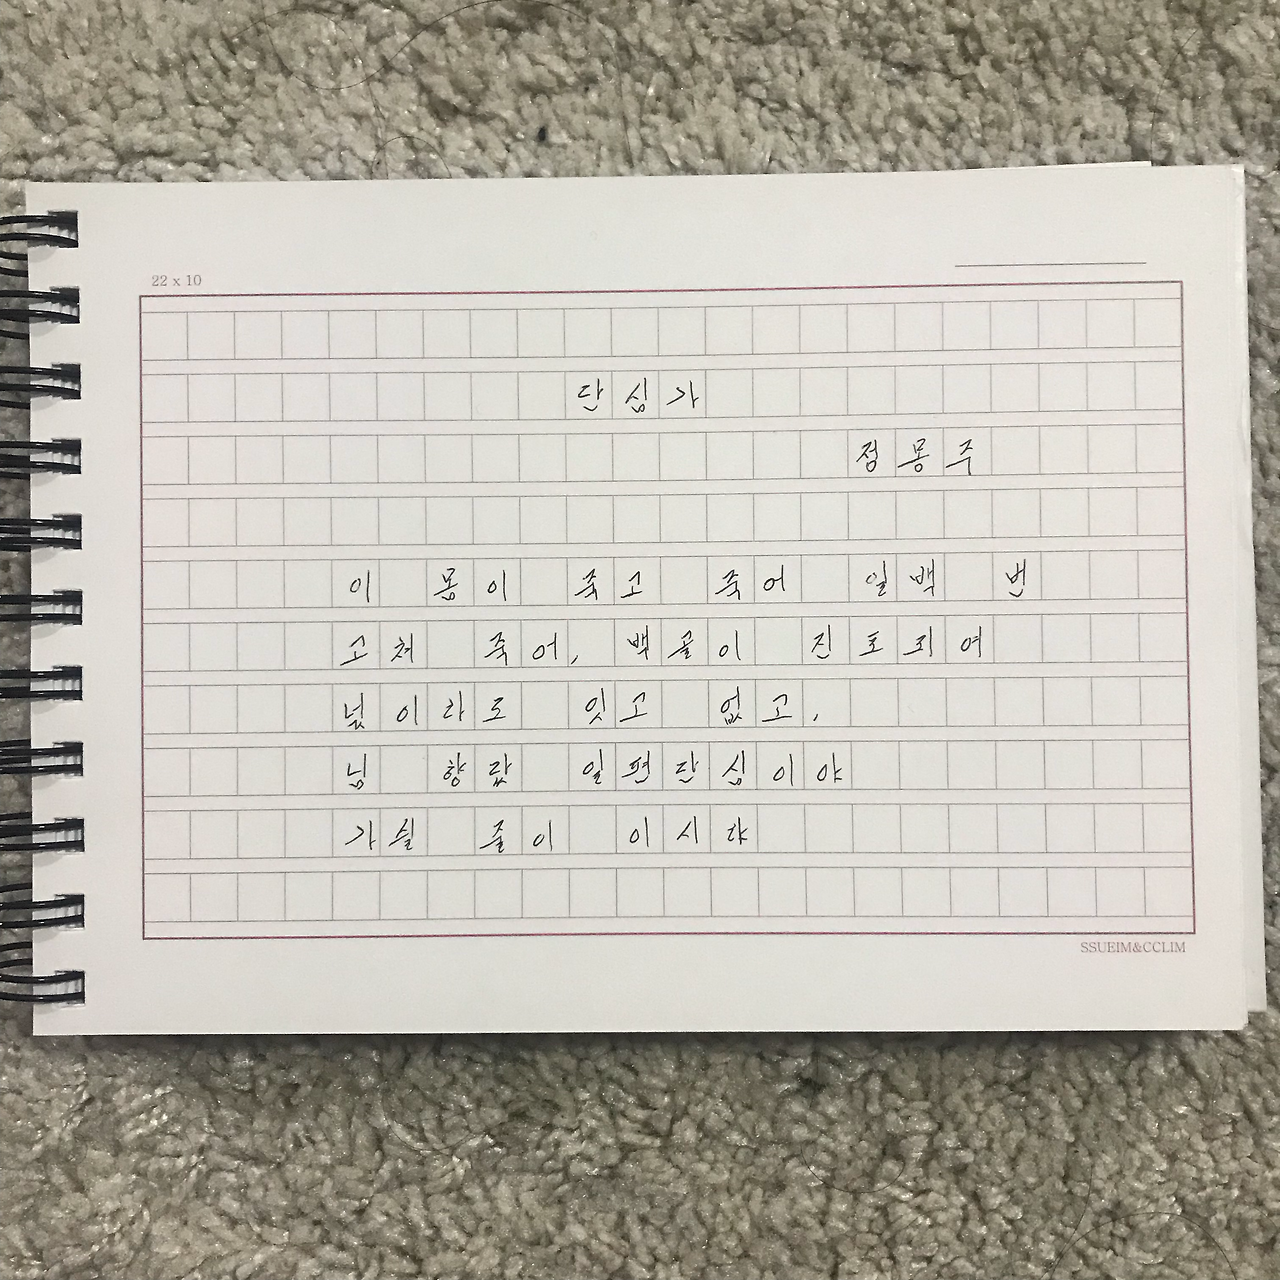 22 x 10
단심가
정몽주
이 몸이 죽고 죽어 일백 번
고쳐 죽어, 백골이 진토되여
넋이라도 잇고 없고,
님 향한 일편단심이야
가싈 줄이 이시랴
SSUEIM&CCLIM